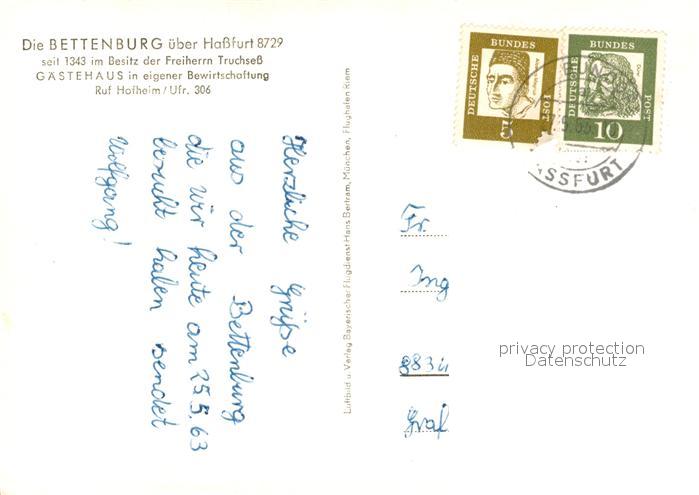 Die BETTENBURG über Haßfurt 8729
seit 1343 im Besitz der Freiherrn Truchseß
GÄSTEHAUS in eigener Bewirtschaftung
Ruf Hofheim/Ufr. 306
Herzliche Grüße
aus der Bettenburg
die wir heute am 25.5.63
besucht haben sendet
Wolfgang!
Luftbild u. Verlag Bayerischer Flugdienst Hans Bertram, München, Flughafen Riem
DEUTSCHE BUNDES POST
5
DEUTSCHE BUNDES POST
10
ASSFURT
Fr.
Ing
883
Graf
privacy protection
Datenschutz